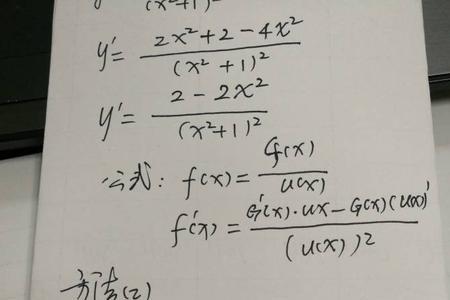 (x²+1)²
y' = (2x²+2-4x²)/(x²+1)²
y' = (2-2x²)/(x²+1)²
公式: f(x) = G(x)/u(x)
f'(x) = (G'(x)·ux-G(x)(u(x))')/(u(x))²
方法(2)